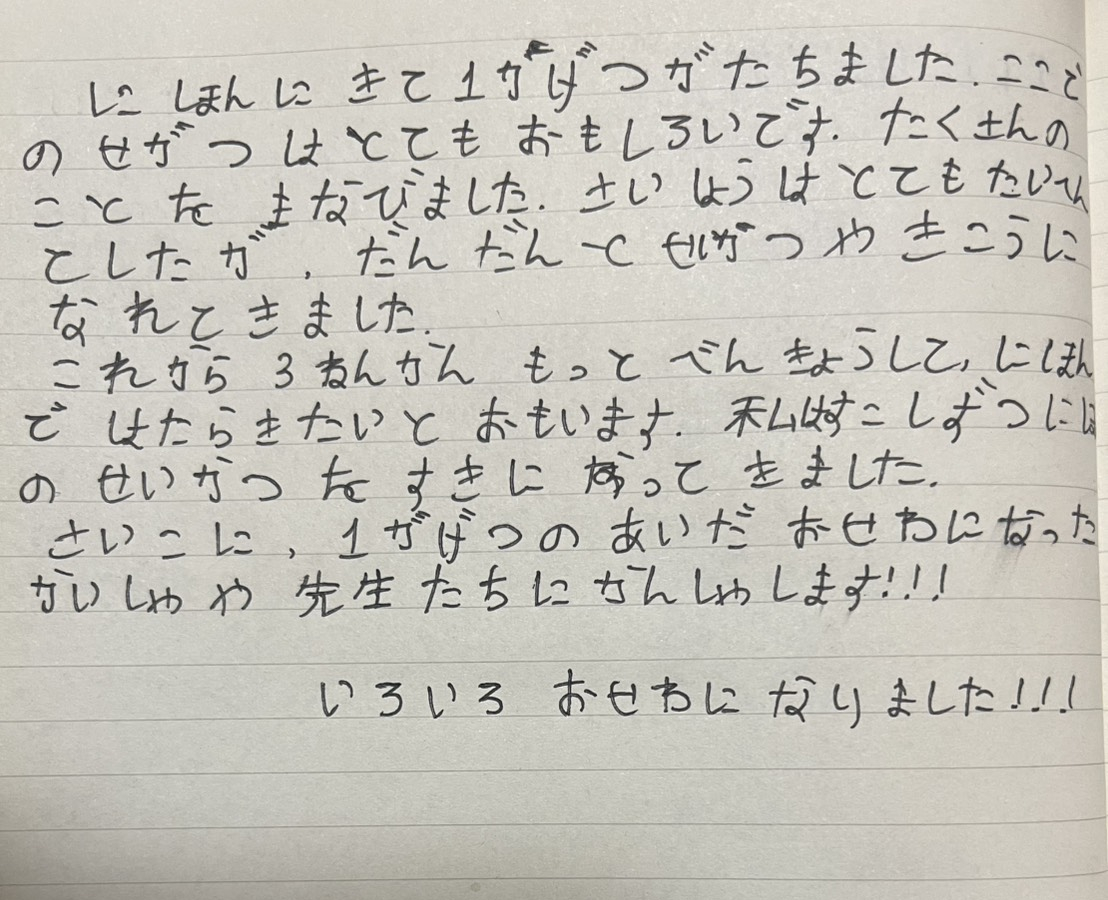 にほんにきて1がげつがたちました.ここで
のせがつはとてもおもしろいです.たくさんの
ことをまなびました.さいしょうはとてもたいひん
としたが,だんだんとせいがつやきこうに
なれてきました.
これから3ねんかんもっとべんきょうして,にほん
ではたらきたいとおもいます.私はすこしずつにほ
のせいがつをすきになってきました.
さいこに,1がげつのあいだおせわになった
がいしゃや先生たちにがんしゃします!!!
いろいろおせわになりました!!!